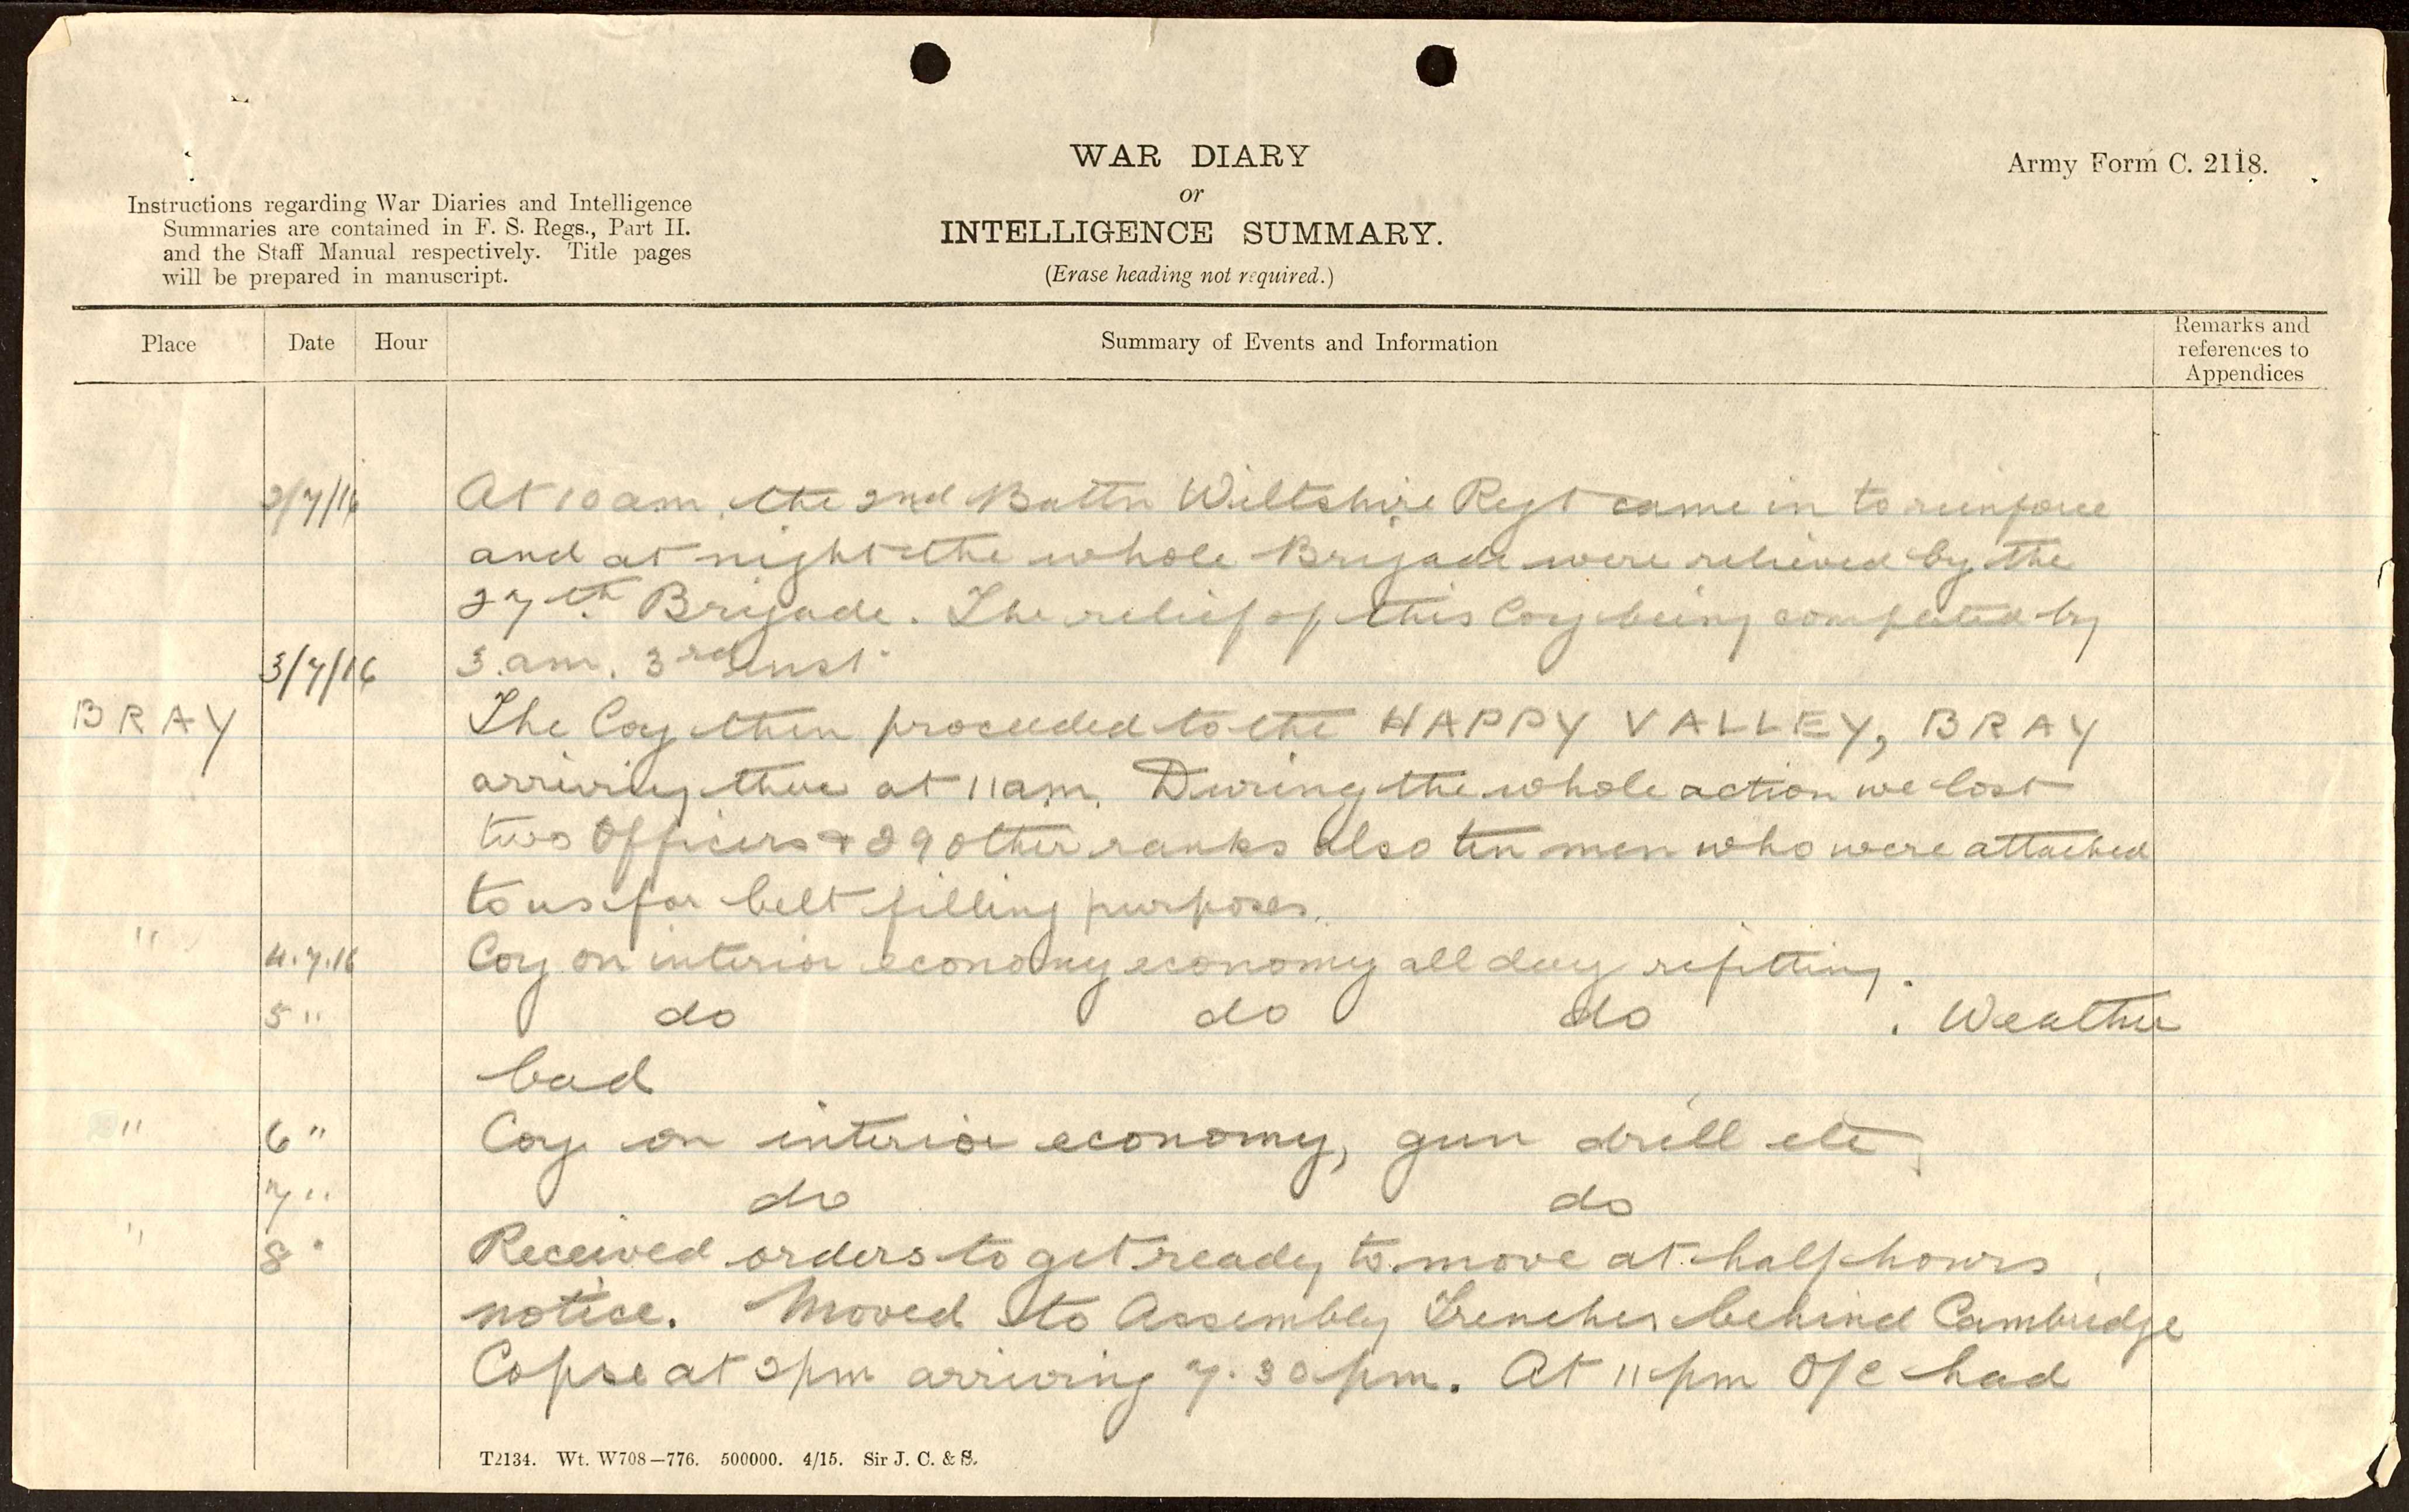 WAR DIARY
or
INTELLIGENCE SUMMARY.
(Erase heading not required.)
Army Form C. 2118.
Instructions regarding War Diaries and Intelligence
Summaries are contained in F. S. Regs., Part II.
and the Staff Manual respectively. Title pages
will be prepared in manuscript.
Place Date Hour Summary of Events and Information Remarks and references to Appendices
2/7/16 At 10 am. the 2nd Battn Wiltshire Regt came in to reinforce
and at night the whole Brigade were relieved by the
27th Brigade. The relief of this Coy being completed by
3/7/16 3.am. 3rd inst.
BRAY The Coy then proceeded to the HAPPY VALLEY, BRAY
arriving there at 11am. During the whole action we lost
two Officers & 29 other ranks also ten men who were attached
to us for belt filling purposes.
" 4.7.16 Coy on interior economy economy all day refitting.
5 " do do do . Weather
bad
" 6 " Coy on interior economy, gun drill etc.
7 " do do
" 8 " Received orders to get ready to move at half hours
notice. Moved to Assembly Trenches behind Cambridge
Copse at 2pm arriving 7.30pm. At 11pm O/C had
T2134. Wt. W708—776. 500000. 4/15. Sir J. C. & S.